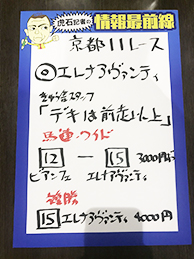 虎石記者の情報最前線
京都11レース
◎エレナアヴァンティ
「デキは前走以上」
馬連・ワイド
12 ー 15 3000円
ビアンフェ エレナアヴァンティ
複勝
15 エレナアヴァンティ 4000円